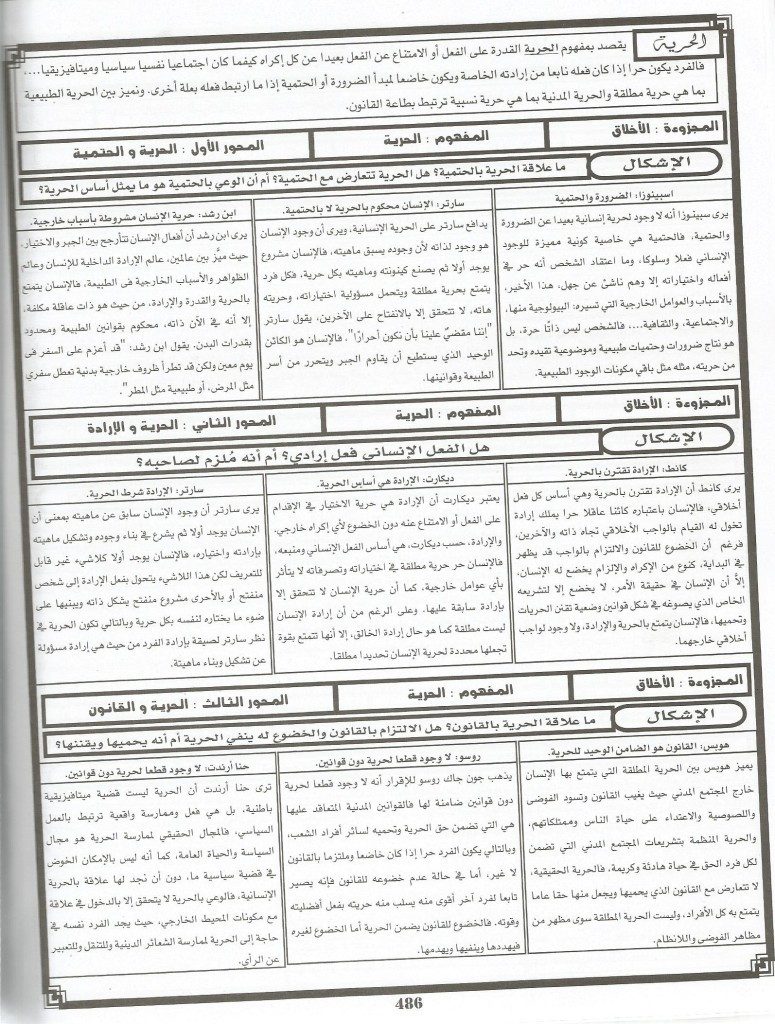 الحرية
يقصد بمفهوم الحرية القدرة على الفعل أو الامتناع عن الفعل بعيدا عن كل إكراه كيفما كان اجتماعيا نفسيا سياسيا وميتافيزيقيا....،
فالفرد يكون حرا إذا كان فعله نابعا من إرادته الخاصة ويكون خاضعا لمبدأ الضرورة أو الحتمية إذا ما ارتبط فعله بعلة أخرى. ونميز بين الحرية الطبيعية
بما هي حرية مطلقة والحرية المدنية بما هي حرية نسبية ترتبط بطاعة القانون.
المجزوءة : الأخلاق
المفهوم : الحرية
المحور الأول : الحرية و الحتمية
الإشكال
ما علاقة الحرية بالحتمية؟ هل الحرية تتعارض مع الحتمية؟ أم أن الوعي بالحتمية هو ما يمثل أساس الحرية؟
اسبينوزا: الضرورة والحتمية
يرى سبينوزا أنه لا وجود لحرية إنسانية بعيدا عن الضرورة
والحتمية. فالحتمية هي خاصية كونية مميزة للوجود
الإنساني فعلا وسلوكا، وما اعتقاد الشخص أنه حر في
أفعاله واختياراته إلا وهم ناشئ عن جهل، هذا الأخير،
بالأسباب والعوامل الخارجية التي تسيره: البيولوجية منها،
والاجتماعية، والثقافية.... فالشخص ليس ذاتًا حرة، بل
هو نتاج ضرورات وحتميات طبيعية وموضوعية تقيده وتحد
من حريته، مثله مثل باقي مكونات الوجود الطبيعية.
سارتر: الإنسان محكوم بالحرية لا بالحتمية.
يدافع سارتر على الحرية الإنسانية، ويرى أن وجود الإنسان
هو وجود لذاته لأن وجوده يسبق ماهيته، فالإنسان مشروع
يوجد أولا ثم يصنع كينونته وماهيته بكل حرية. فكل فرد
يتمتع بحرية مطلقة ويتحمل مسؤولية اختياراته، وحريته
هاته، لا تتحقق إلا بالانفتاح على الآخرين، يقول سارتر
"إننا مقضيٌّ علينا بأن نكون أحرارًا"، فالإنسان هو الكائن
الوحيد الذي يستطيع أن يقاوم الجبر ويتحرر من أسر
الطبيعة وقوانينها.
ابن رشد: حرية الإنسان مشروطة بأسباب خارجية.
يرى ابن رشد أن أفعال الإنسان تتأرجح بين الجبر والاختيار،
حيث ميز بين عالمين، عالم الإرادة الداخلية للإنسان وعالم
الظواهر والأسباب الخارجية في الطبيعة. فالإنسان يتمتع
بالحرية والقدرة والإرادة، من حيث هو ذات عاقلة مكلفة،
إلا أنه في الآن ذاته، محكوم بقوانين الطبيعة ومحدود
بقدرات البدن. يقول ابن رشد: "قد أعزم على السفر في
يوم معين ولكن قد تطرأ ظروف خارجية بدنية تعطل سفري
مثل المرض، أو طبيعية مثل المطر".
المجزوءة : الأخلاق
المفهوم : الحرية
المحور الثاني : الحرية و الإرادة
الإشكال
هل الفعل الإنساني فعل إرادي؟ أم أنه مُلزم لصاحبه؟
كانط: الإرادة تقترن بالحرية.
يرى كانط أن الإرادة تقترن بالحرية وهي أساس كل فعل
أخلاقي. فالإنسان باعتباره كائنا عاقلا حرا يملك إرادة
تخول له القيام بالواجب الأخلاقي تجاه ذاته والآخرين،
فرغم أن الخضوع للقانون والالتزام بالواجب قد يظهر
في البداية، كنوع من الإكراه والإلزام يخضع له الإنسان.
إلاَّ أن الإنسان في حقيقة الأمر، لا يخضع إلا لتشريعه
الخاص الذي يصوغه في شكل قوانين وضعية تقنن الحريات
وتحميها، فالإنسان يتمتع بالحرية والإرادة، ولا وجود لواجب
أخلاقي خارجهما.
ديكارت: الإرادة هي أساس الحرية.
يعتبر ديكارت أن الإرادة هي حرية الاختيار في الإقدام
على الفعل أو الامتناع عنه دون الخضوع لأي إكراه خارجي.
والإرادة، حسب ديكارت، هي أساس الفعل الإنساني ومنبعه،
فالإنسان حر حرية مطلقة في اختياراته وتصرفاته لا يتأثر
بأي عوامل خارجية. كما أن حرية الإنسان لا تتحقق إلا
بإرادة سابقة عليها. وعلى الرغم من أن إرادة الإنسان
ليست مطلقة كما هو حال إرادة الخالق، إلا أنها تتمتع بقوة
تجعلها محددة لحرية الإنسان تحديدا مطلقا.
سارتر: الإرادة شرط الحرية.
يرى سارتر أن وجود الإنسان سابق عن ماهيته بمعنى أن
الإنسان يوجد أولا ثم يشرع في بناء وجوده وتشكيل ماهيته
بإرادته واختياره، فالإنسان يوجد أولا كلاشيء غير قابل
للتعريف لكن هذا اللاشيء يتحول بفعل الإرادة إلى شخص
منفتح أو بالأحرى مشروع منفتح يشكل ذاته ويبنيها على
ضوء ما يختاره لنفسه بكل حرية وبالتالي تكون الحرية في
نظر سارتر لصيقة بإرادة الفرد من حيث هي إرادة مسؤولة
عن تشكيل وبناء ماهيتة.
المجزوءة : الأخلاق
المفهوم : الحرية
المحور الثالث : الحرية و القانون
الإشكال
ما علاقة الحرية بالقانون؟ هل الالتزام بالقانون والخضوع له ينفي الحرية أم أنه يحميها ويقننها؟
هوبس: القانون هو الضامن الوحيد للحرية.
يميز هوبس بين الحرية المطلقة التي يتمتع بها الإنسان
خارج المجتمع المدني حيث يغيب القانون وتسود الفوضى
واللصوصية والاعتداء على حياة الناس وممتلكاتهم،
والحرية المنظمة بتشريعات المجتمع المدني التي تضمن
لكل فرد الحق في حياة هادئة وكريمة. فالحرية الحقيقية،
لا تتعارض مع القانون الذي يحميها ويجعل منها حقا عاما
يتمتع به كل الأفراد، وليست الحرية المطلقة سوى مظهر من
مظاهر الفوضى واللانظام.
روسو: لا وجود قطعا لحرية دون قوانين.
يذهب جون جاك روسو للإقرار أنه لا وجود قطعا لحرية
دون قوانين ضامنة لها فالقوانين المدنية المتعاقد عليها
هي التي تضمن حق الحرية وتحميه لسائر أفراد الشعب،
وبالتالي يكون الفرد حرا إذا كان خاضعا وملتزما بالقانون
لا غير، أما في حالة عدم خضوعه للقانون فإنه يصير
تابعا لفرد آخر أقوى منه يسلب منه حريته بفعل أفضليته
وقوته. فالخضوع للقانون يضمن الحرية أما الخضوع لغيره
فيهددها وينفيها ويهدمها.
حنا أرندت: لا وجود قطعا لحرية دون قوانين.
ترى حنا أرندت أن الحرية ليست قضية ميتافيزيقية
باطنية، بل هي فعل وممارسة واقعية ترتبط بالعمل
السياسي، فالمجال الحقيقي لممارسة الحرية هو مجال
السياسة والحياة العامة، كما أنه ليس بالإمكان الخوض
في قضية سياسية ما، دون أن نجد لها علاقة بالحرية
الإنسانية. فالوعي بالحرية لا يتحقق إلا بالدخول في علاقة
مع مكونات المحيط الخارجي، حيث يجد الفرد نفسه في
حاجة إلى الحرية لممارسة الشعائر الدينية وللتنقل وللتعبير
عن الرأي.
486